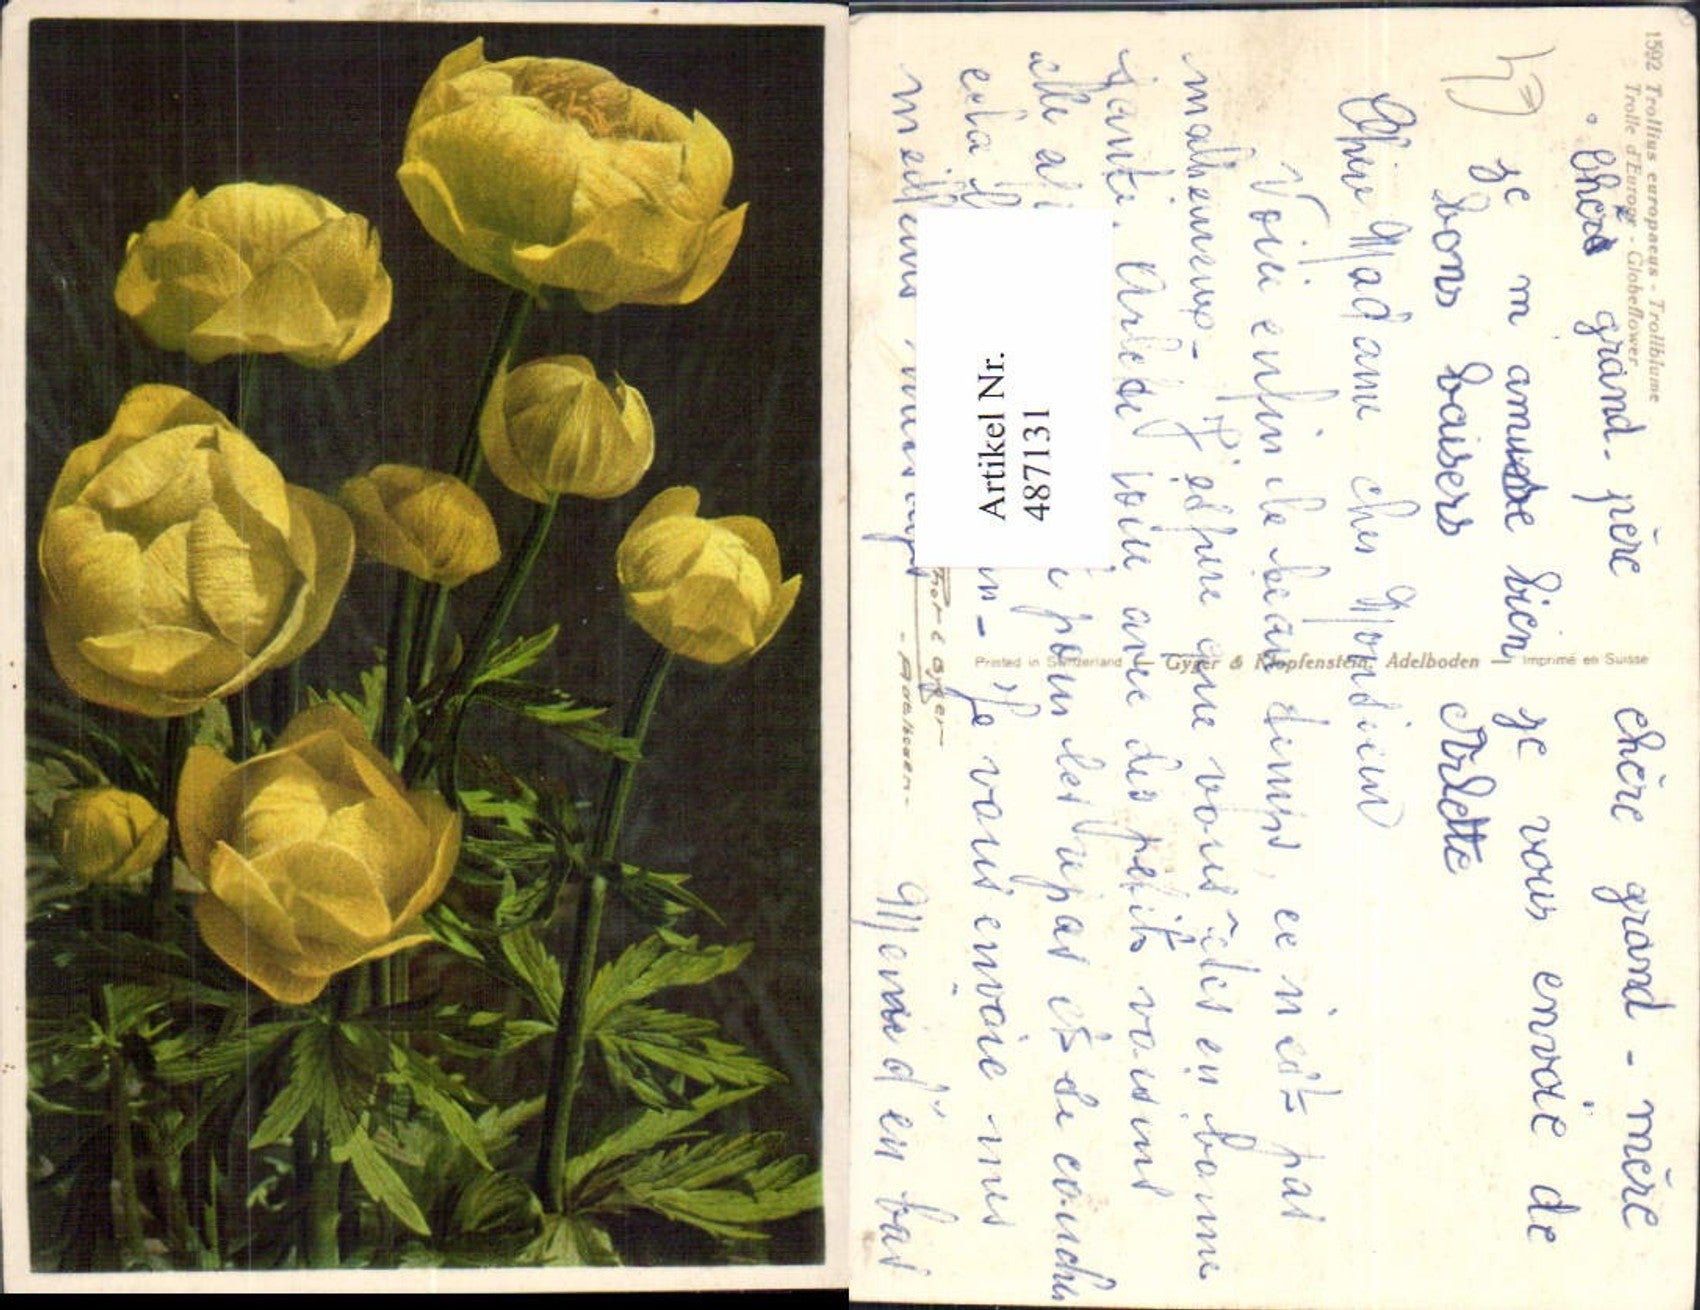 1592 Trollius europaeus - Trollblume
Trolle d'Europe - Globeflower
Chers grand-père chère grand-mère
je m amusse bien je vous envoie de
bons baisers Arlette
Chère Madame cher Monsieur
Voici enfin le beau temps, ce n'est pas
malheureux - J'espère que vous êtes en bonne
santé. Arlette joue avec des petits voisins
elle pour les repas et se coucher
cela Je vous envoie mes
meilleurs messages
Printed in Switzerland — Gyger & Klopfenstein, Adelboden — Imprimé en Suisse
Gyger
- Adelboden -
Artikel Nr.
487131